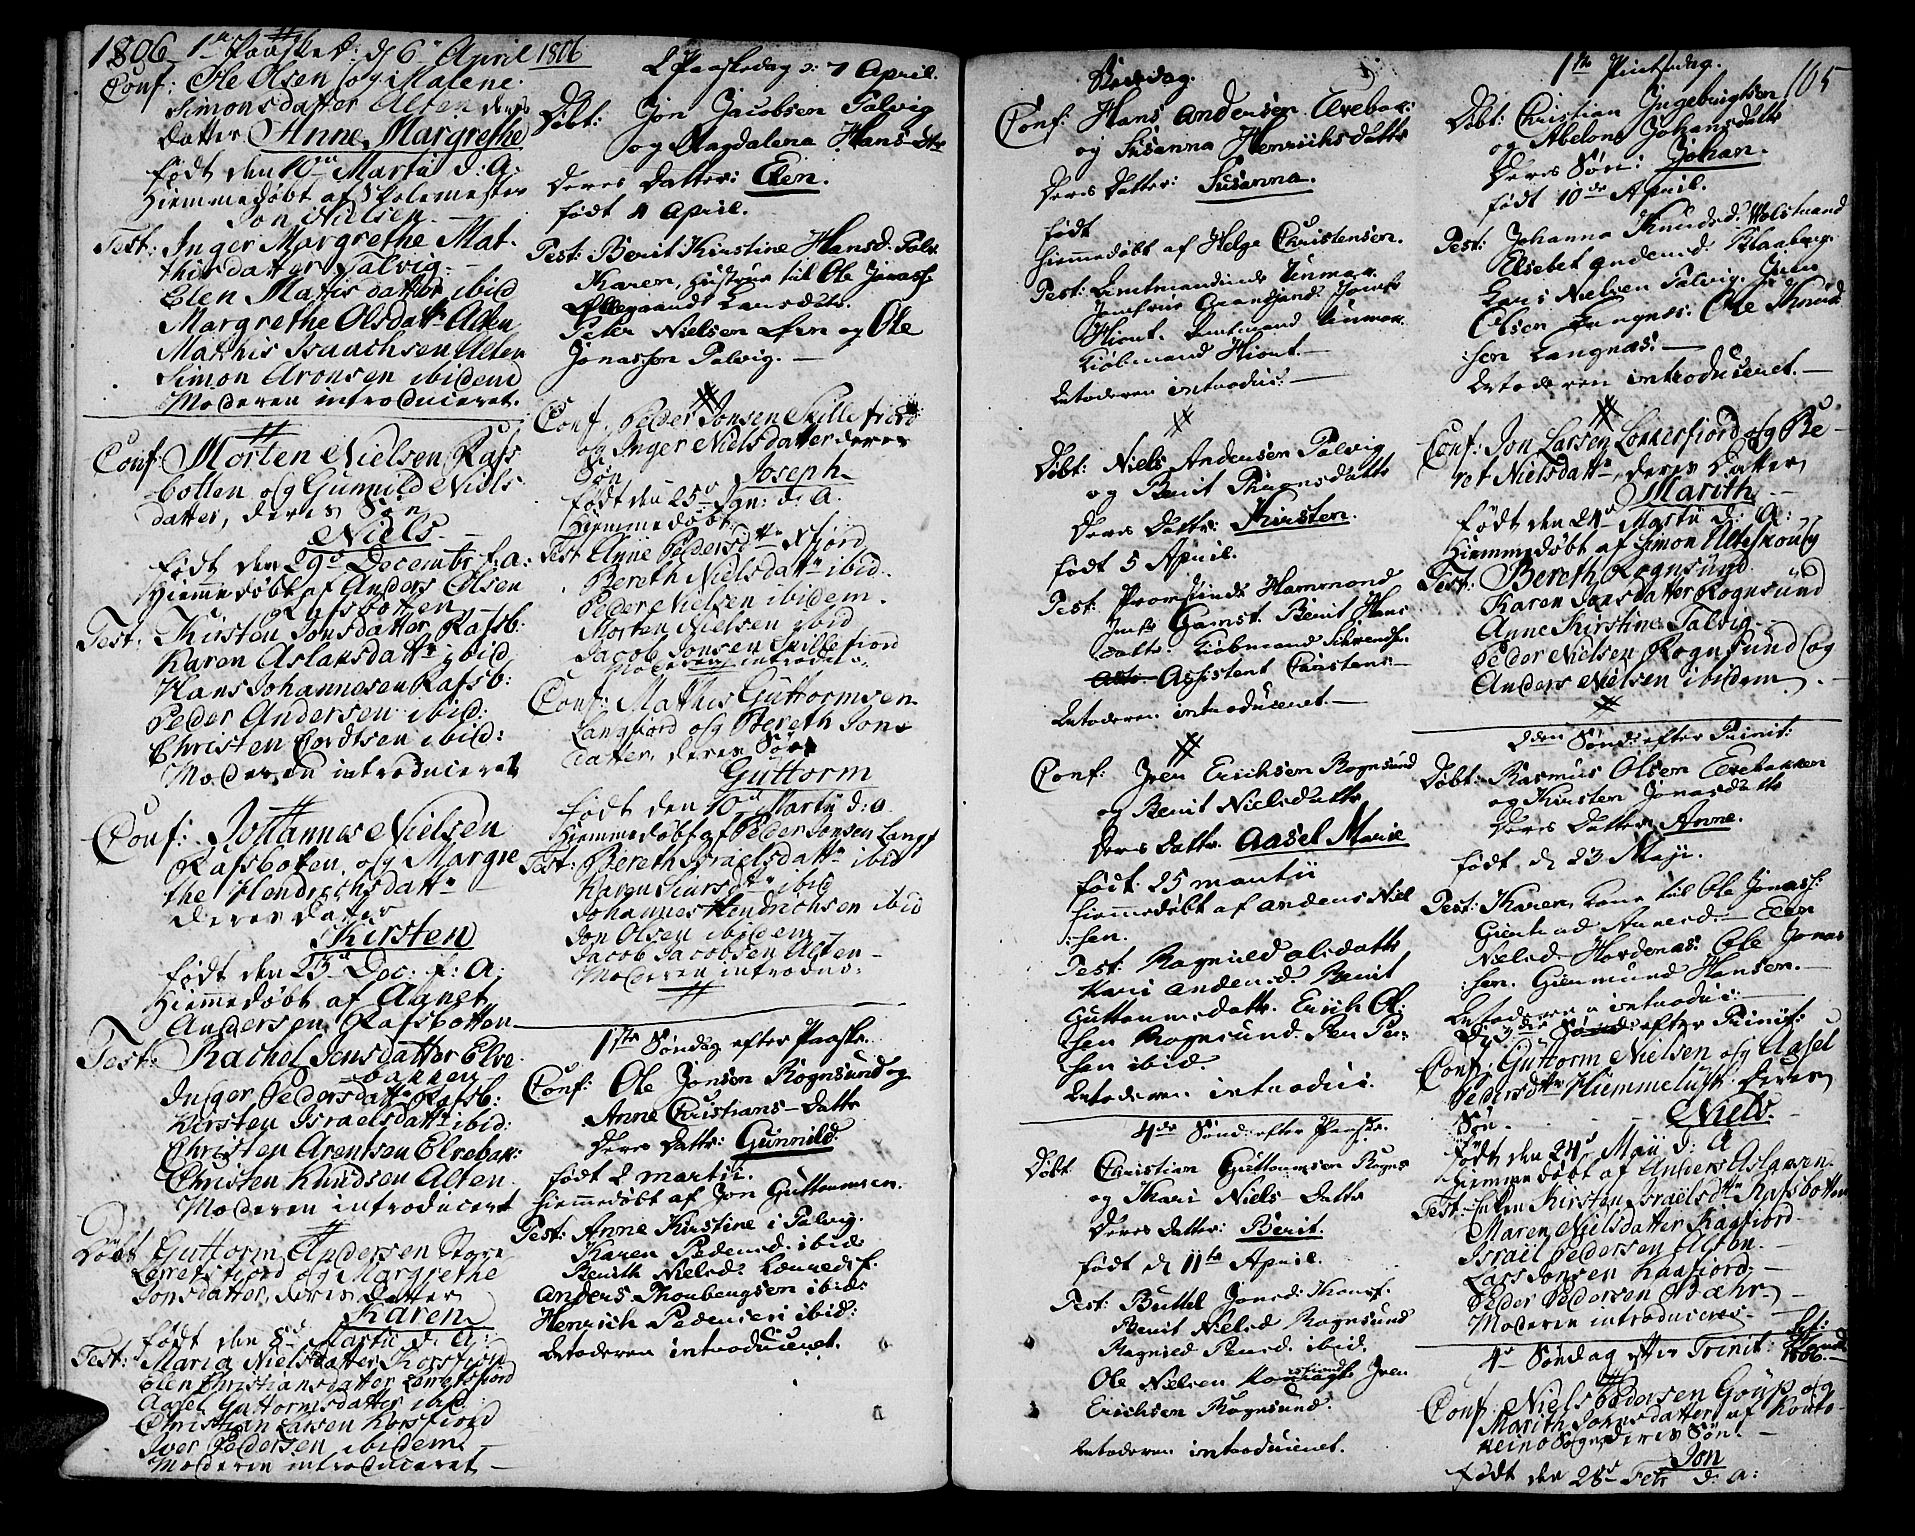 1806 1ste Paasked: d 6te April 1806
Conf: Ole Olsen og Malene
Simonsdatter Alten deres
datter Anne Margrethe
født den 10de Martii d: A:
Hiemmedøbt af Skolemester
Jon Nielsen.
Test: Inger Margrethe Mat-
thisdatter Talvig.
Elen Mathisdatter ibid
Margrethe Olsdattr Alten
Mathis Isaachsen Alten
Simon Aronsen ibidem
Moderen introduceret.
Conf: Morten Nielsen Rafs
botten og Gunnild Niels
datter, deres Søn
Niels.
født den 29de Decembr f: a:
Hiemmedøbt af Anders Olsen
Rafsbotten
Test: Kirsten Jonsdatter Rafsb:
Karen Aslaksdattr ibid
Hans Johannesen Rafsb:
Peder Andersen ibid:
Christen Cordtsen ibid:
Moderen introduceret
Conf: Johannes Nielsen
Rafsboten og Margre
the Hendrichsdattr
deres datter
Kirsten
født den 23d Dec: f: A:
Hiemmedøbt af Agnet
Andersen Rafsbotten
Test: Rachel Jensdatter Elve
bakken
Inger Pedersdattr Rafsb:
Kirsten Israelsdattr ibid:
Christen Arentsen Elvebak:
Christen Knudsen Alten
Moderen introduceret
Døbt Guttorm Andersen Store
Lerretsfiord og Margrethe
Jonsdatter, deres datter
Karen
født den 8d Martii d: A:
Test: Maria Nielsdatter Korsfiord
Elen Christiansdatter Lerretsfiord
Aasel Guttormsdatter ibid
Christian Larsen Korsfiord
Iver Pedersen ibidem
Moderen introduceret
2 Paaskedag d: 7 April.
Døbt: Jon Jacobsen Talvig
og Magdalena Hans-Dtr
Deres Datter: Elen.
født 4 April.
Test: Berit Kirstine Hansd: Talv
Karen, Hustrue til Ole Jonass:
Ellegaard Larsdatr.
Peter Nielsen Øren og Ole
Jonassen Talvig.
Conf. Peder Jonsen Skillefiord
og Inger Nielsdatter deres
Søn Joseph
født den 25d Jan: d: A.
Hiemmedøbt
Test Anne Pedersdtr fiord
Bereth Nielsdattr ibid.
Peder Nielsen ibidem.
Morten Nielsen ibid
Jacob Jonsen Skillefiord
Moderen introdus.
Conf: Mathis Guttormsen
Langfiord og Bereth Jons
datter, deres Søn
Guttorm
født den 10d Martii d: a
Hiemmedøbt af Peder Jonsen Langf
Test: Bereth Israelsdattr ibid
Karen Larsdtr ibid
Johannes Hendrichsen ibid
Jon Olsen ibidem
Jacob Jacobsen Alten
Moderen introdus:
1ste Søndag efter Paaske.
Conf: Ole Jonsen Rognsund og
Anne Christians-Datr
Deres Dattr: Gunnild.
født 2 Martii.
Hiemmedøbt af Jon Guttormsen.
Test: Anne Kirstine i Talvig.
Karen Pedersd. ibid:
Berith Nielsd:
Anders Thorbergsen ibid:
Henrich Pedersen ibid:
Moderen introduceret.
Bededag.
Conf: Hans Andersen Elvebak:
og Susanna Henrichsdattr
Deres Datter: Susanna.
født
hiemmedøbt af Helge Christensen.
Test:
Hiort.
Kiøbmand Hiort.
Moderen introdus:
Døbt: Niels Andersen Talvig
og Berit Thuresdattr
Deres Dattr: Kirsten.
født 5 April.
Test: Provstinde Hammond
Jmfr Gamst. Berit Hans
dattr. Kiøbmand
Assistent Carstens
Moderen introduceret.
Conf: Iver Erichsen Rognsund
og Berit Nielsdattr
Deres Dattr. Aasel Marie
født 25 martii
hiemmedøbt af Anders Niel
sen.
Test: Ragnild Olsdattr
Kari Andersd. Berit
Guttormsdattr. Erich Ol:
sen Rognsund. Per Per-
sen ibid.
Moderen introdus:
4de Sønd: efter Paaske.
Døbt: Christian Guttormsen Rogns
og Kari Niels-Dattr
Deres Dattr: Berit.
født d 11te April.
Test: Buttel Jonsd:
Berit Nielsd Rognsund
Ragnild Persd. ibid.
Ole Nielsen Iver
Erichsen Rognsund.
Moderen introduceret.
105
1ste Pintsedag.
Døbt: Christian Ingebrigtsen
og Abelone Johansdattr
Deres Søn: Johan.
født 10de April.
Test: Johanna Knudsd: Wolstrand
Elsebet Andersd: Klaaberg.
Lars Nielsen Talvig. Iver
Olsen Ole Knud
sen Langnæs.
Moderen introduceret.
Conf: Jon Larsen Lokkerfiord og Be-
ret Nielsdattr, deres Datter
Marith
født den 24d Martii d: A:
Hiemmedøbt af Simon Alteskou
Test: Bereth Rognsund
Karen Jonsdatter Rognsund
Anne Kirstine Talvig
Peder Nielsen Rognsund og
Anders Nielsen ibidem
2den Sønd: efter Trinit:
Døbt: Rasmus Olsen Elvebakken
og Kirsten Jonasdattr
Deres Datter Anne.
født d 23 Maji.
Test: Karen, Kone til Ole Jonass:
Giertrud Arnesd. Elen
Nielsd. Ole Jonas
sen. Giermund Hansen.
Moderen introdus:
3die Sønd: efter Trinit:
Conf: Guttorm Nielsen og Aasel
Pedersdtr Hiemmeluft deres
Søn Niels.
født den 24d Maii d: A
Hiemmedøbt af Anders Aslaksen
Test: Enken Kirsten Israelsdtr Rafsbotten
Maren Nielsdatter Kaafiord
Israel Pedersen Alten.
Lars Jonsen Kaafiord
Peder Pedersen Bæhr
Moderen introduceres
4d Søndag efter Trinit:
1806.
Conf: Niels Pedersen Goup og
Marith Jonsdatter af Kouto-
keino Sogn, deres Søn
Jon
født den 28d Febr d: a: